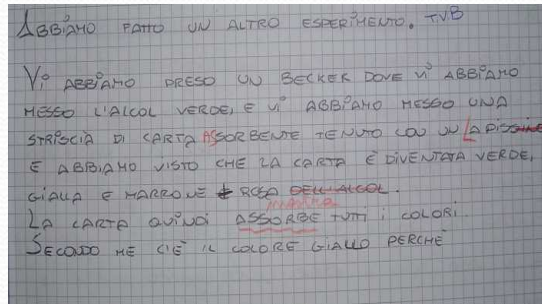 ABBIAMO FATTO UN ALTRO ESPERIMENTO. T.V.B
VI ABBIAMO PRESO UN BECKER DOVE VI ABBIAMO
MESSO L'ALCOL VERDE, E VI ABBIAMO MESSO UNA
STRISCIA DI CARTA ASSORBENTE TENUTO CON UN LAPIS
E ABBIAMO VISTO CHE LA CARTA È DIVENTATA VERDE,
GIALLA E MARRONE E ROSA DELL'ALCOL.
LA CARTA QUINDI ASSORBE TUTTI I COLORI.
SECONDO ME C'IÈ IL COLORE GIALLO PERCHÈ